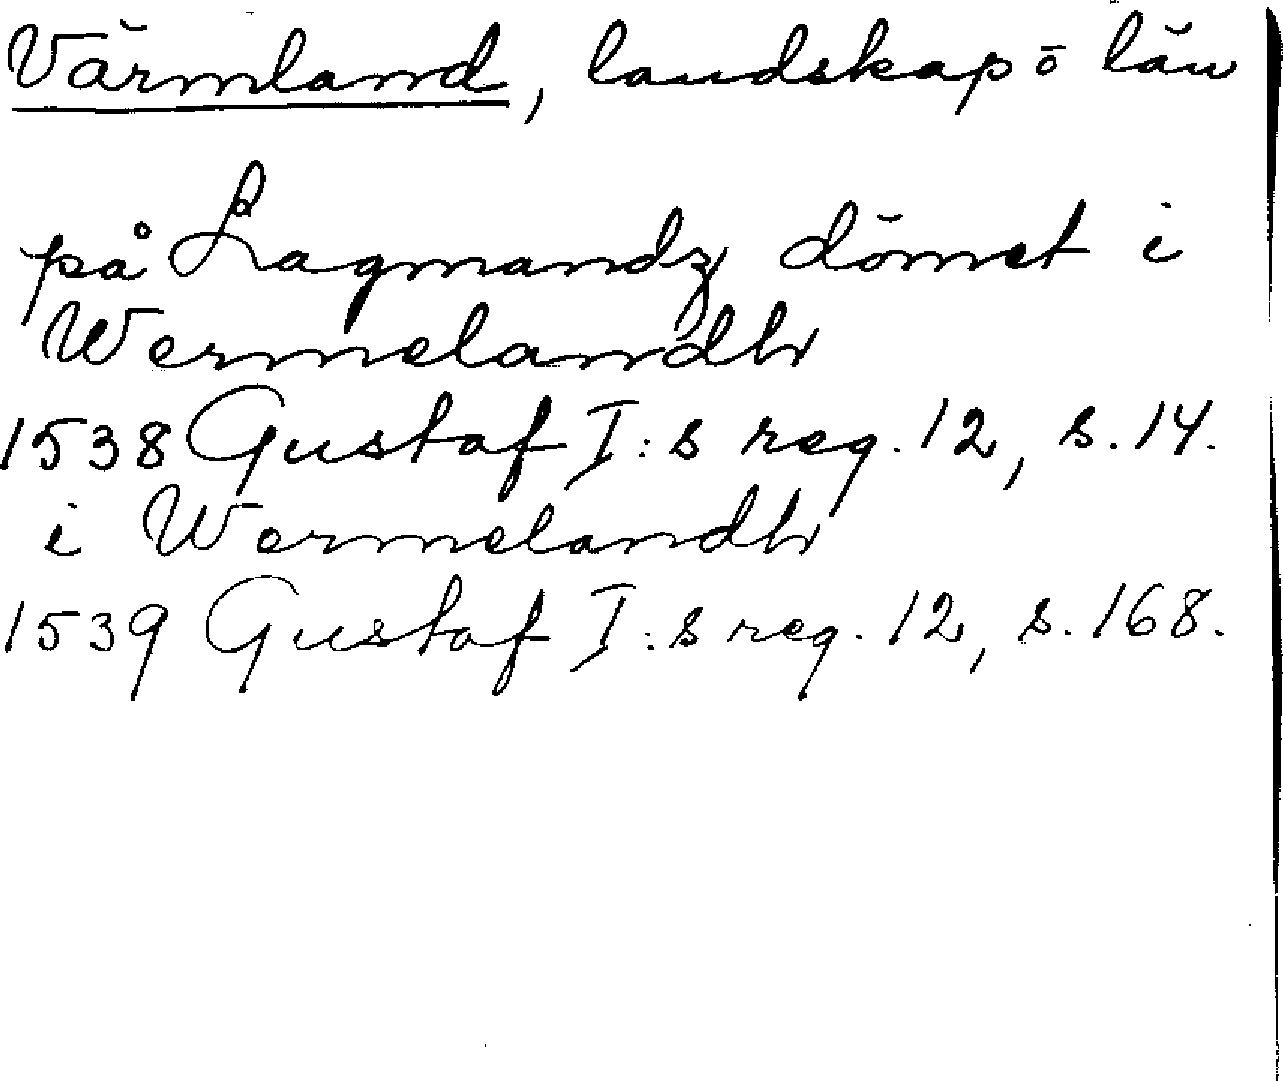 Värmland, landskap o län
på Lagmandz dömet i
Wermelandh
1538 Gustaf I:s reg. 12, s. 14.
i Wermelandh
1539 Gustaf I:s reg. 12, s. 168.